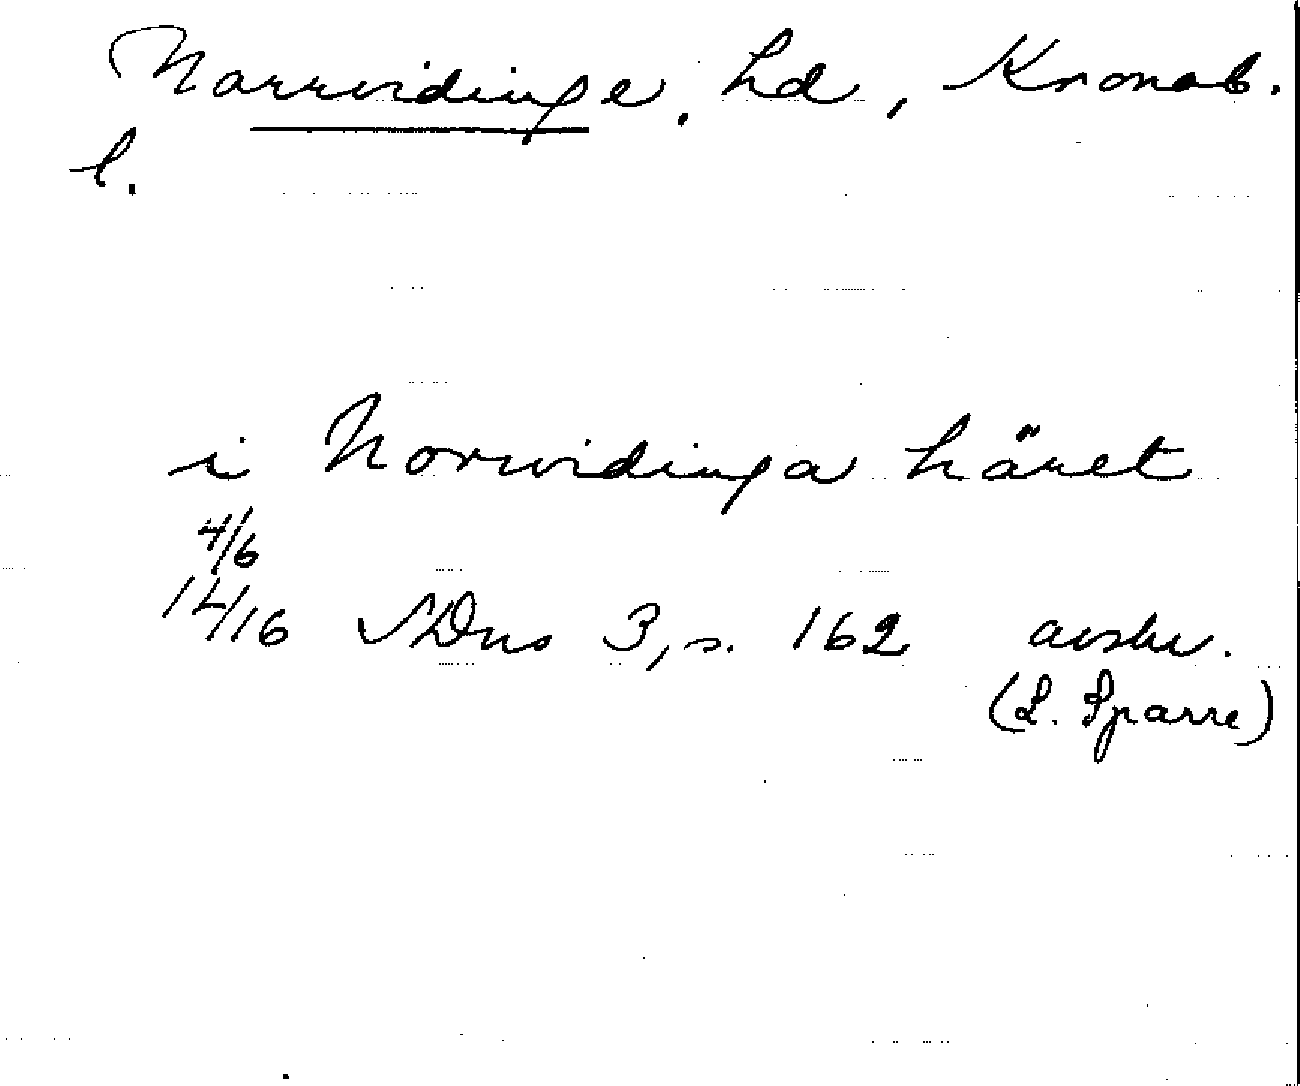 Norrvidinge, hd, Kronob.
l.
i Norwidinga häret
4/6
14/16 SDns 3, s. 162 avskr.
(L. Sparre)